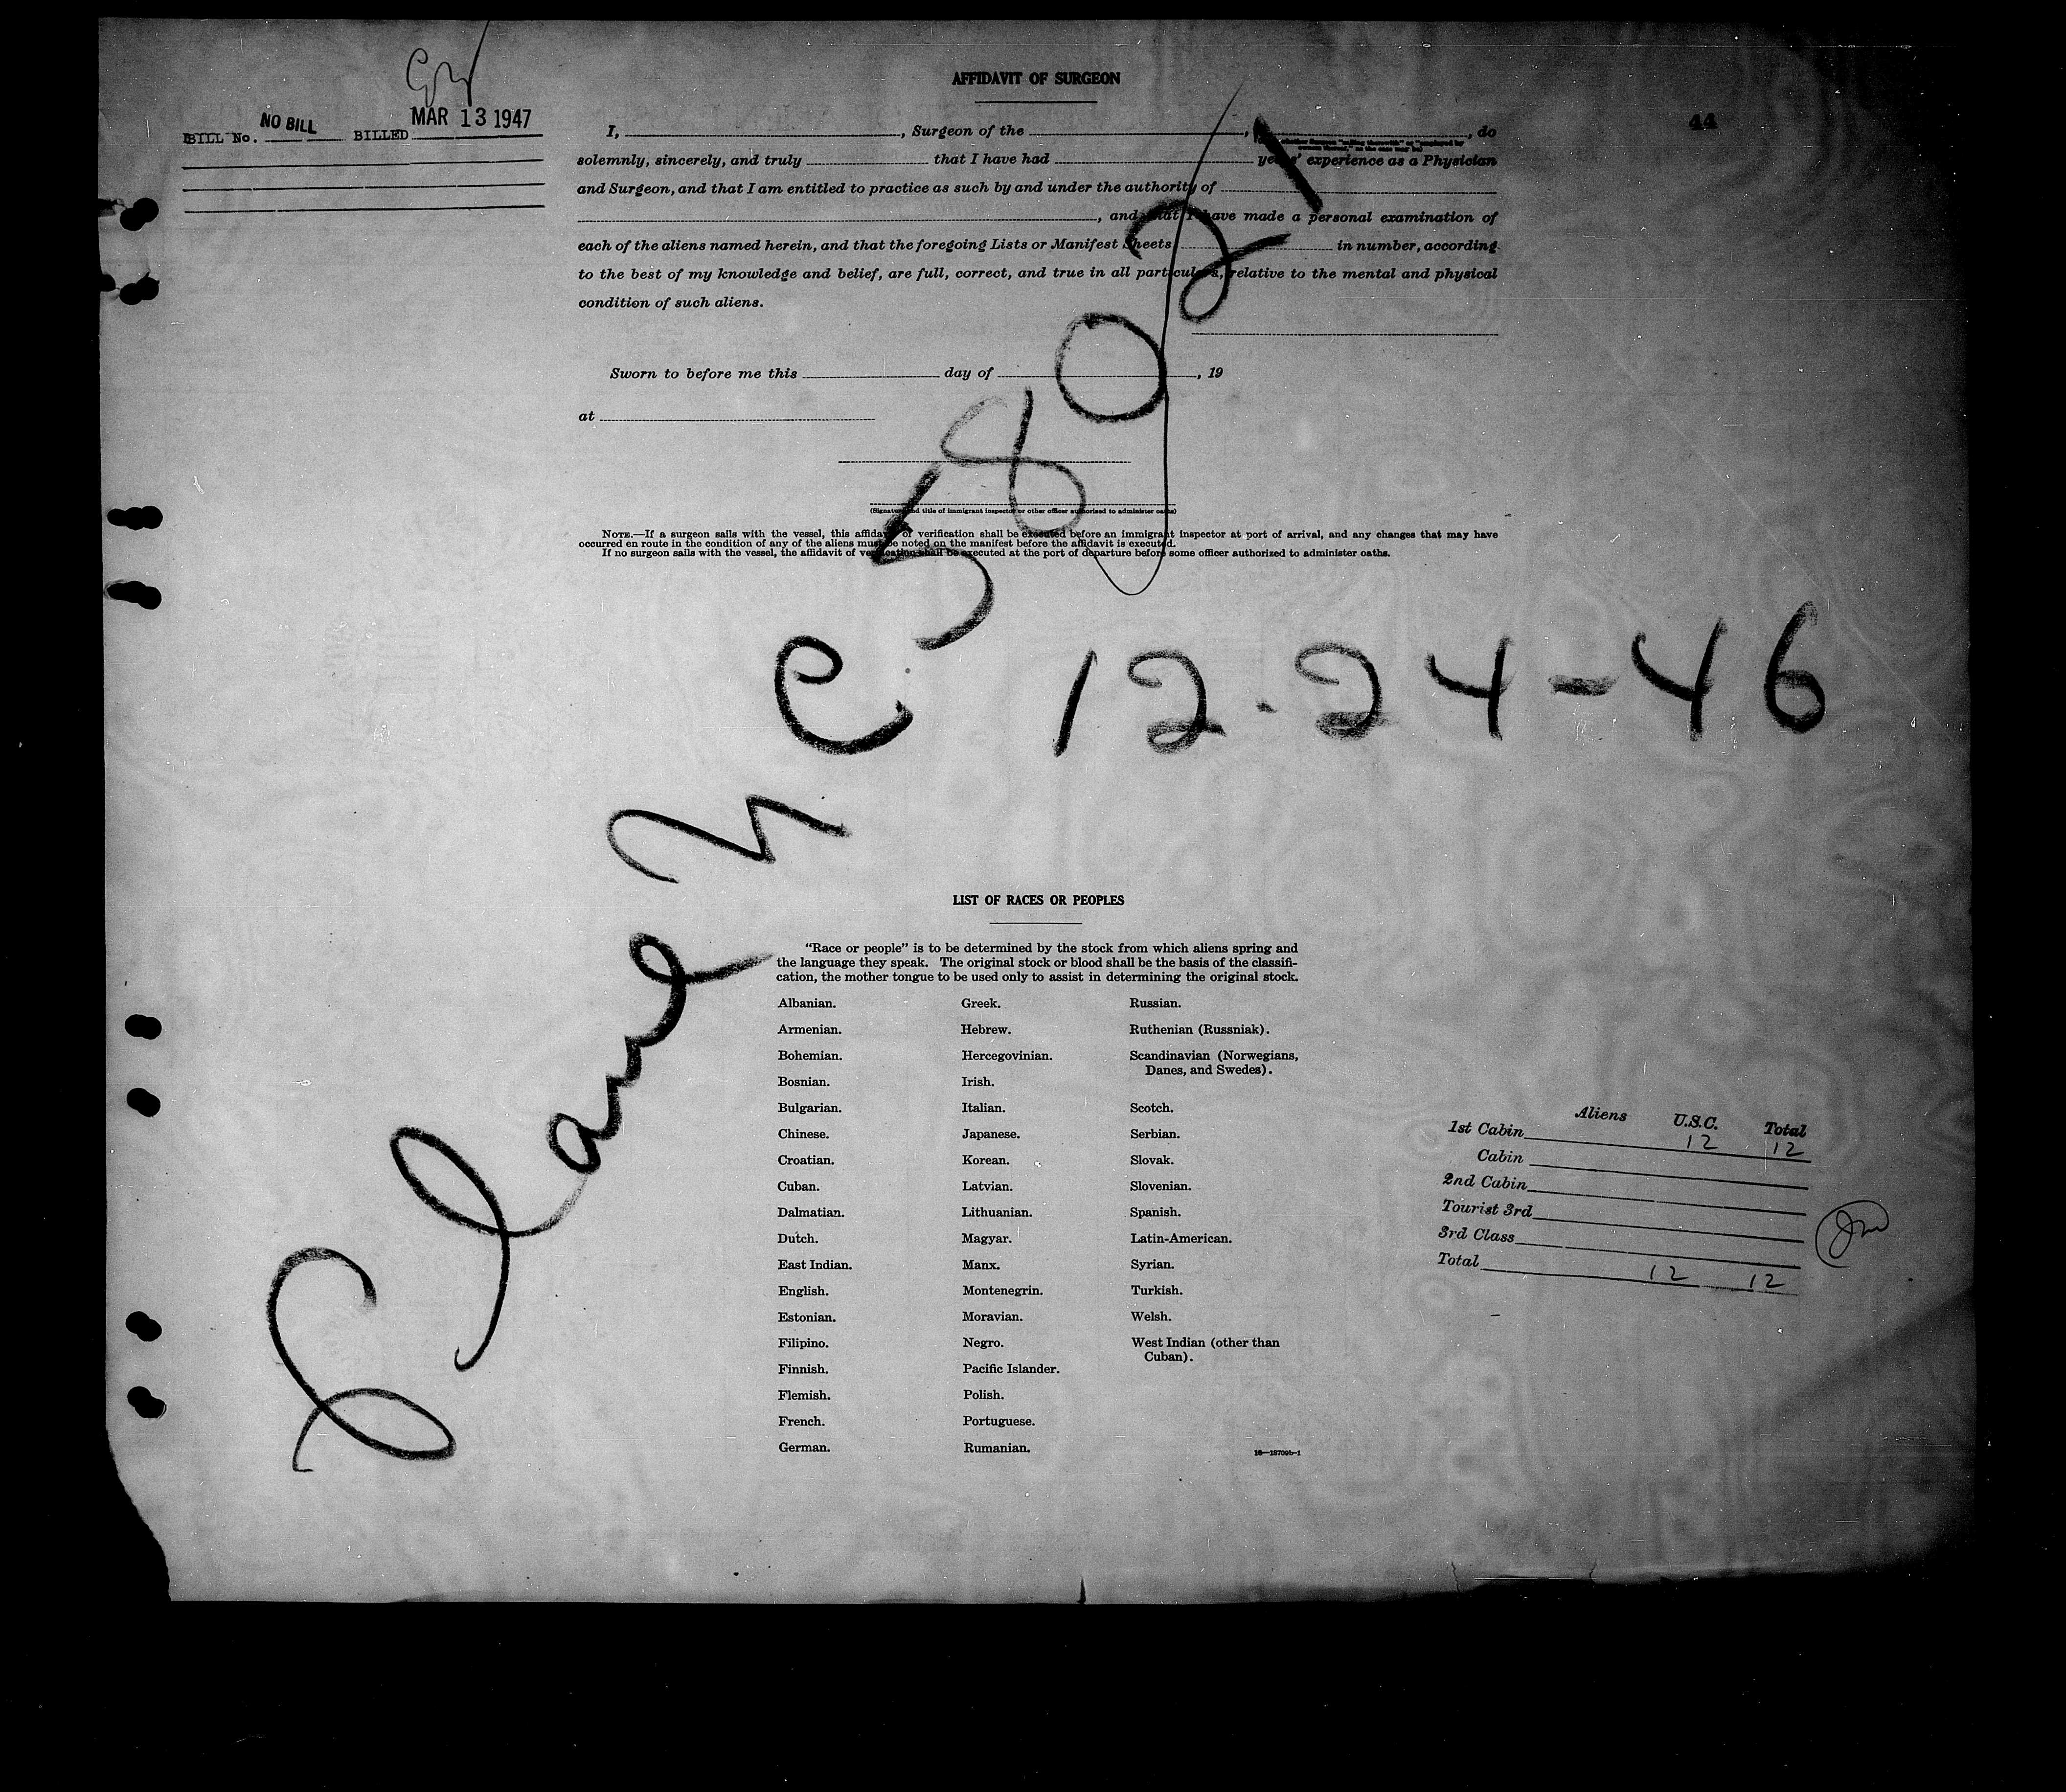 AFFIDAVIT OF SURGEON
44
BILL No. NO BILL BILLED MAR 13 1947
I, , Surgeon of the , , do
solemnly, sincerely, and truly that I have had years' experience as a Physician
and Surgeon, and that I am entitled to practice as such by and under the authority of
, and that I have made a personal examination of
each of the aliens named herein, and that the foregoing Lists or Manifest Sheets, in number, according
to the best of my knowledge and belief, are full, correct, and true in all particulars, relative to the mental and physical
condition of such aliens.
Sworn to before me this day of , 19
at
(Signature and title of immigrant inspector or other officer authorized to administer oaths)
NOTE.—If a surgeon sails with the vessel, this affidavit of verification shall be executed before an immigrant inspector at port of arrival, and any changes that may have
occurred en route in the condition of any of the aliens must be noted on the manifest before the affidavit is executed.
If no surgeon sails with the vessel, the affidavit of verification shall be executed at the port of departure before some officer authorized to administer oaths.
Plane NC 58021
12-24-46
LIST OF RACES OR PEOPLES
"Race or people" is to be determined by the stock from which aliens spring and
the language they speak. The original stock or blood shall be the basis of the classifi-
cation, the mother tongue to be used only to assist in determining the original stock.
Albanian. Greek. Russian.
Armenian. Hebrew. Ruthenian (Russniak).
Bohemian. Hercegovinian. Scandinavian (Norwegians,
Danes, and Swedes).
Bosnian. Irish.
Bulgarian. Italian. Scotch.
Chinese. Japanese. Serbian.
Croatian. Korean. Slovak.
Cuban. Latvian. Slovenian.
Dalmatian. Lithuanian. Spanish.
Dutch. Magyar. Latin-American.
East Indian. Manx. Syrian.
English. Montenegrin. Turkish.
Estonian. Moravian. Welsh.
Filipino. Negro. West Indian (other than
Cuban).
Finnish. Pacific Islander.
Flemish. Polish.
French. Portuguese.
German. Rumanian.
16—18709b-1
Aliens U.S.C. Total
1st Cabin 12 12
Cabin
2nd Cabin
Tourist 3rd
3rd Class
Total 12 12